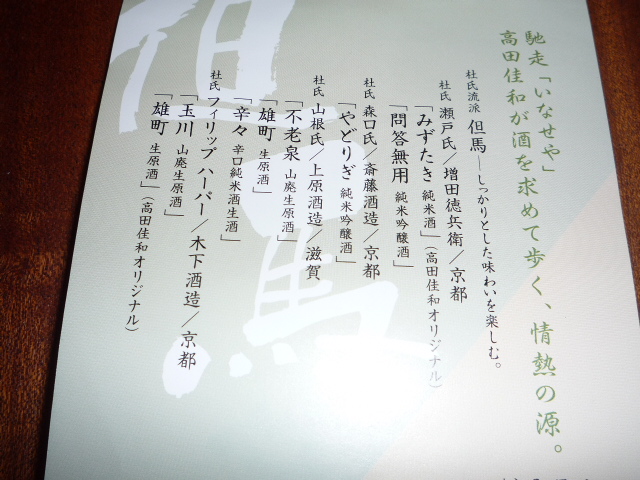 馳走「いなせや」
高田佳和が酒を求めて歩く、情熱の源。
杜氏流派 但馬―しっかりとした味わいを楽しむ。
杜氏 瀬戸氏／増田徳兵衛／京都
「みずたき 純米酒」（高田佳和オリジナル）
「問答無用 純米吟醸酒」
杜氏 森口氏／斎藤酒造／京都
「やどりぎ 純米吟醸酒」
杜氏 山根氏／上原酒造／滋賀
「不老泉 山廃生原酒」
「雄町 生原酒」
「辛々 辛口純米酒生酒」
杜氏 フィリップ ハーパー／木下酒造／京都
「玉川 山廃生原酒」
「雄町 生原酒」（高田佳和オリジナル）
但馬